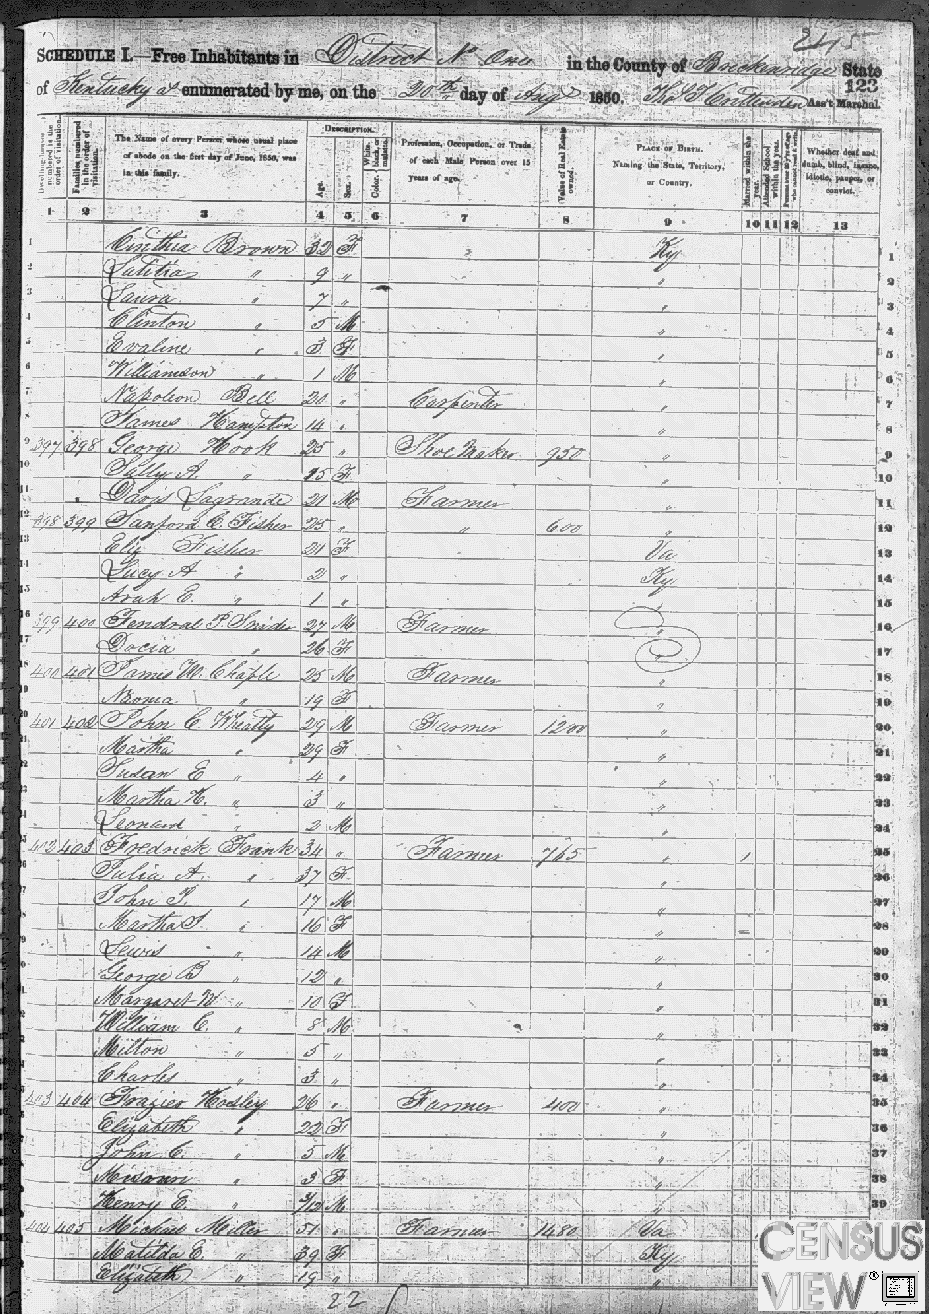 2415
SCHEDULE I.—Free Inhabitants in District No One in the County of Breckenridge State
of Kentucky enumerated by me, on the 20th day of Aug 1850. Ass't Marshal. 123
Dwelling-houses numbered in the order of visitation.
Families numbered in the order of visitation.
The Name of every Person whose usual place of abode on the first day of June, 1850, was in this family.
DESCRIPTION.
Age.
Sex.
Color, White, black, or mulatto.
Profession, Occupation, or Trade of each Male Person over 15 years of age.
Value of Real Estate owned.
PLACE OF BIRTH. Naming the State, Territory, or Country.
Married within the year.
Attended School within the year.
Persons over 20 y'rs of age who cannot read & write.
Whether deaf and dumb, blind, insane, idiotic, pauper, or convict.
1 2 3 4 5 6 7 8 9 10 11 12 13
1 Cinthia Brown 32 F Ky 1
2 Latitia " 9 " " 2
3 Laura " 7 " " 3
4 Clinton " 5 M " 4
5 Evaline " 3 F " 5
6 Williamson " 1 M " 6
7 Napoleon Bell 20 " Carpenter " 7
8 James Hampton 14 " " 8
9 397 398 George Hook 25 " Shoe Maker 950 " 9
10 Sally A. " 15 F " 10
11 Davis Lagrande 21 M Farmer " 11
12 398 399 Sanford C. Fisher 25 " " 600 " 12
13 Eliz Fisher 21 F Va 13
14 Lucy A " 2 " Ky 14
15 Arah E. " 1 " " 15
16 399 400 Fendral P. Snider 27 M Farmer " 16
17 Docia " 26 F " 17
18 400 401 James W. Chaple 25 M Farmer " 18
19 " 19 F " 19
20 401 402 John C Wheatly 29 M Farmer 1200 " 20
21 Martha " 29 F " 21
22 Susan E " 4 " " 22
23 Martha H. " 3 " " 23
24 Leonard " 2 M " 24
25 402 403 Fredrick Frank 34 " Farmer 765 " 1 25
26 Julia A. " 37 F " 26
27 John T. " 17 M " 27
28 Martha J. " 16 F " = 28
29 Lewis " 14 M " 29
30 George B " 12 " " 30
31 Margaret W " 10 F " 31
32 William C. " 8 M " 32
33 Milton " 5 " " 33
34 Charles " 3 " " 34
35 403 404 Frazier Hodley 26 " Farmer 400 " 35
36 Elizabeth " 22 F " 36
37 John C. " 5 M " 37
38 Missouri " 3 F " 38
39 Henry E. " /12 M " 39
404 405 Michael Miller 51 " Farmer 1480 Va
Matilda E. " 39 F Ky
Elizabeth " 19 " "
22
CENSUS
VIEW®